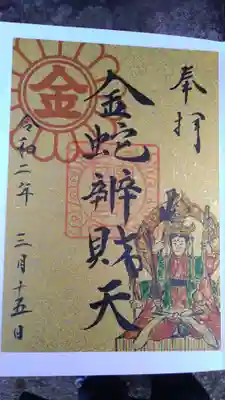 奉拝
金蛇辨財天
令和二年 三月十五日
金